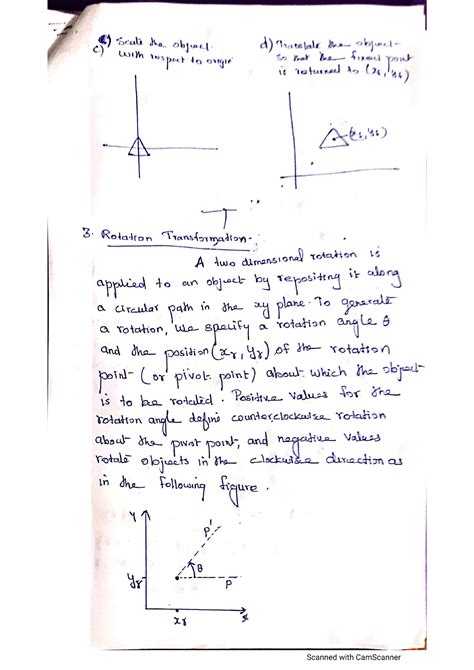 c) Scale the object
with respect to origin
d) Translate the object
so that the fixed point
is returned to (xf, yf)
(xf, yf)
3. Rotation Transformation:
A two dimensional rotation is
applied to an object by repositing it along
a circular path in the xy plane. To generate
a rotation, we specify a rotation angle θ
and the position (xr, yr) of the rotation
point (or pivot point) about which the object
is to be rotated. Positive values for the
rotation angle define counterclockwise rotation
about the pivot point, and negative values
rotate objects in the clockwise direction as
in the following figure.
Y
P'
θ
yr
P
xr
x
Scanned with CamScanner